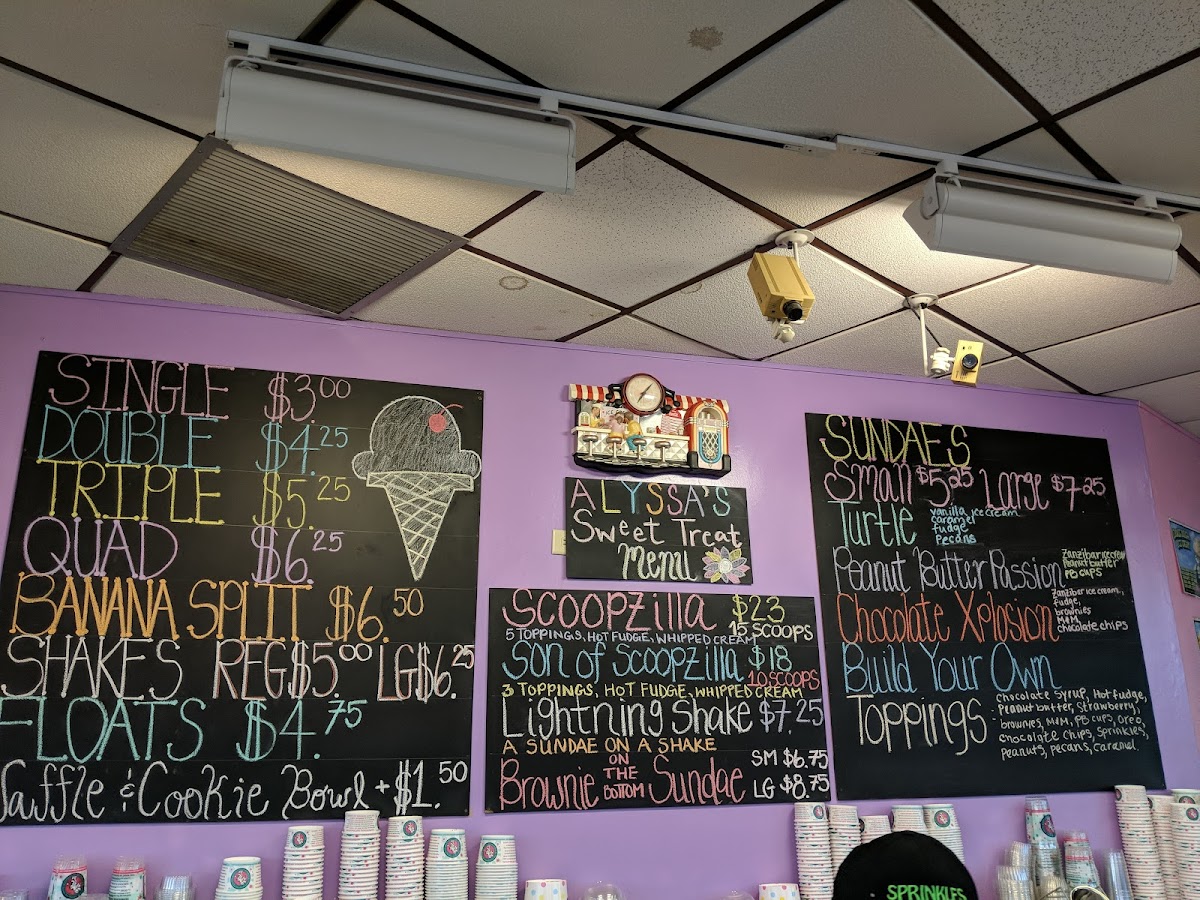 SINGLE $3.00
DOUBLE $4.25
TRIPLE $5.25
QUAD $6.25
BANANA SPLIT $6.50
SHAKES REG $5.00 LG $6.25
FLOATS $4.75
Waffle & Cookie Bowl +$1.50
ALYSSA'S
Sweet Treat
Menu
SCOOPZILLA $23
15 SCOOPS
5 TOPPINGS, HOT FUDGE, WHIPPED CREAM
SON OF SCOOPZILLA $18
10 SCOOPS
3 TOPPINGS, HOT FUDGE, WHIPPED CREAM
Lightning Shake $7.25
A SUNDAE ON A SHAKE
Brownie ON THE BOTTOM Sundae
SM $6.75
LG $8.75
SUNDAES
Small $5.25 Large $7.25
Turtle
vanilla ice cream
caramel
fudge
pecans
Peanut Butter Passion
Zanzibar ice cream
Peanut butter
PB CUPS
Chocolate Xplosion
Zanzibar ice cream,
fudge,
brownies
M&M
chocolate chips
Build Your Own
Toppings
- chocolate syrup, Hot fudge,
peanut butter, strawberry,
brownies, M&M, PB cups, oreo,
chocolate chips, sprinkles,
peanuts, pecans, caramel.
SPRINKLES